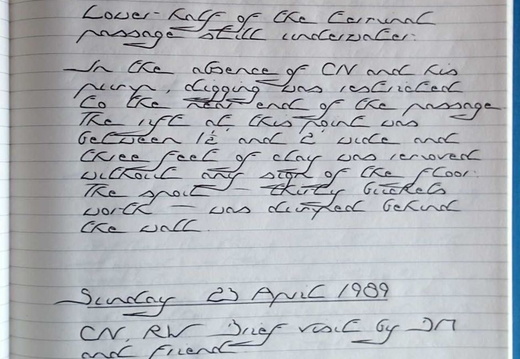 Lower half of the terminal
passage still underwater.
In the absence of CN and his
pump, digging was restricted
to the near end of the passage
The rift at this point was
between 1½ and 2' wide and
three feet of clay was removed
without any sign of the floor.
The spoil – thirty buckets
worth – was dumped behind
the wall.
Sunday 23 April 1989
CN, RW Brief visit by JM
and friend